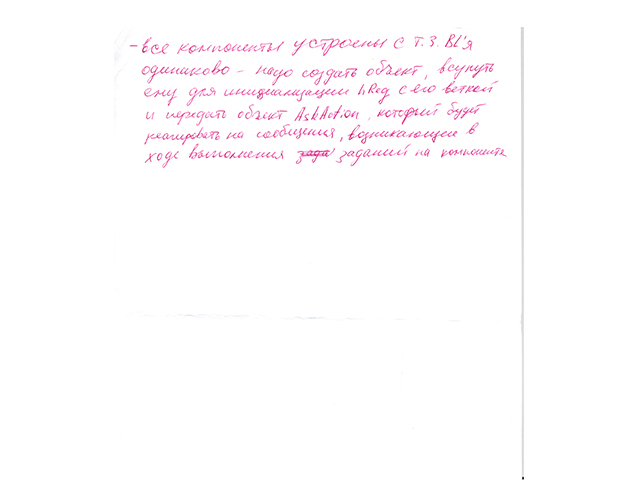 - все компоненты устроены с т.з. BL'я
одинаково - надо создать объект, всунуть
ему для инициализации hReg с его веткой
и передать объект AskAction, который будет
реагировать на сообщения, возникающие в
ходе выполнения зада заданий на компоненте